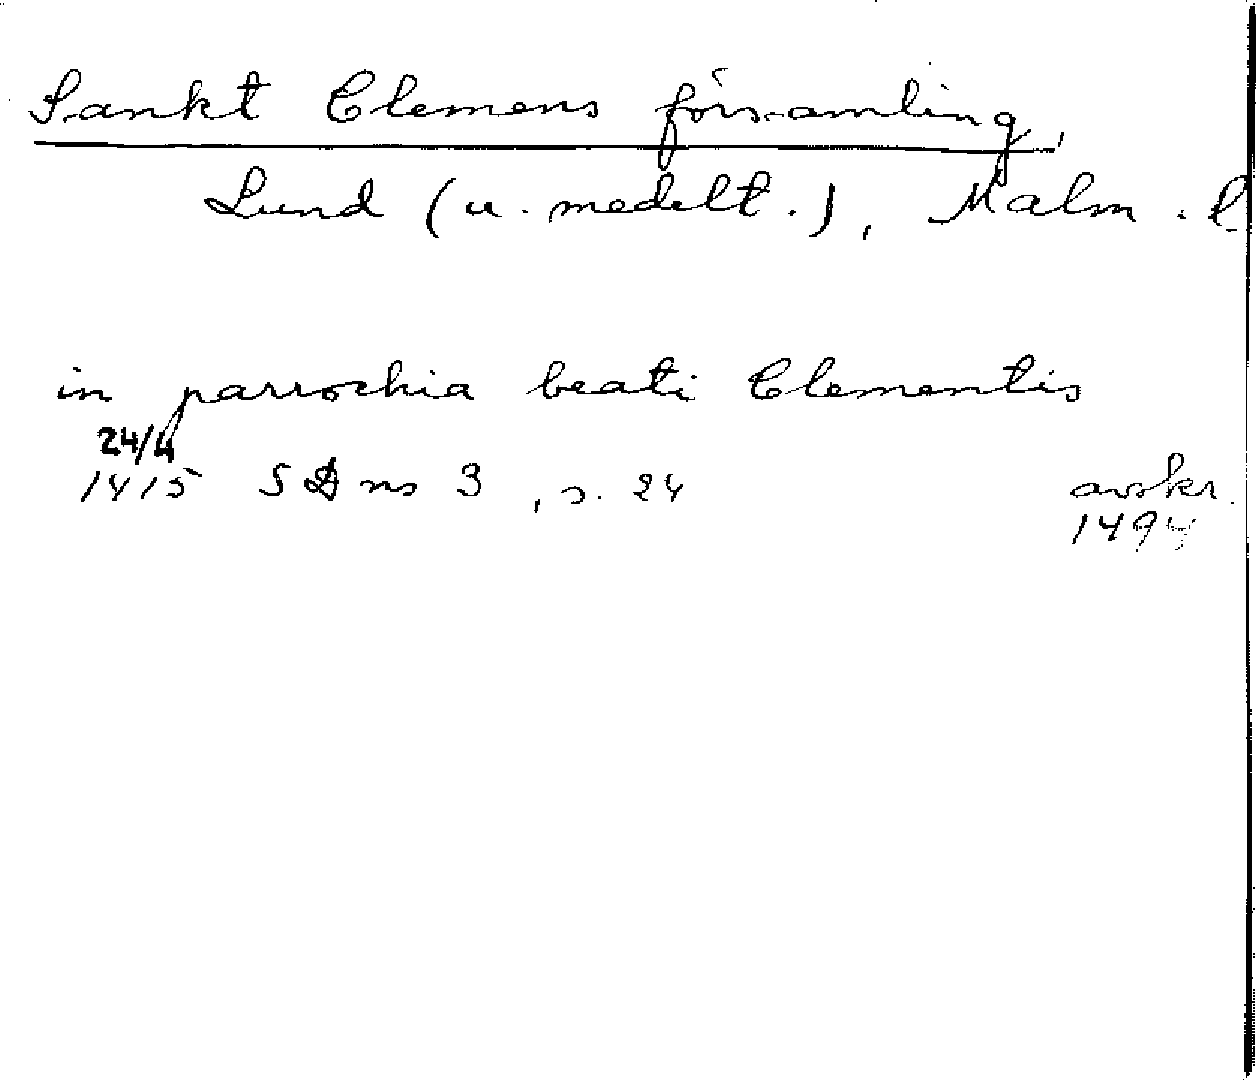 Sankt Clemens församling,
Lund (u. medelt.), Malm. l.
in parrochia beati Clementis
24/4
1415 SD ns 3, s. 24 avskr.
1494